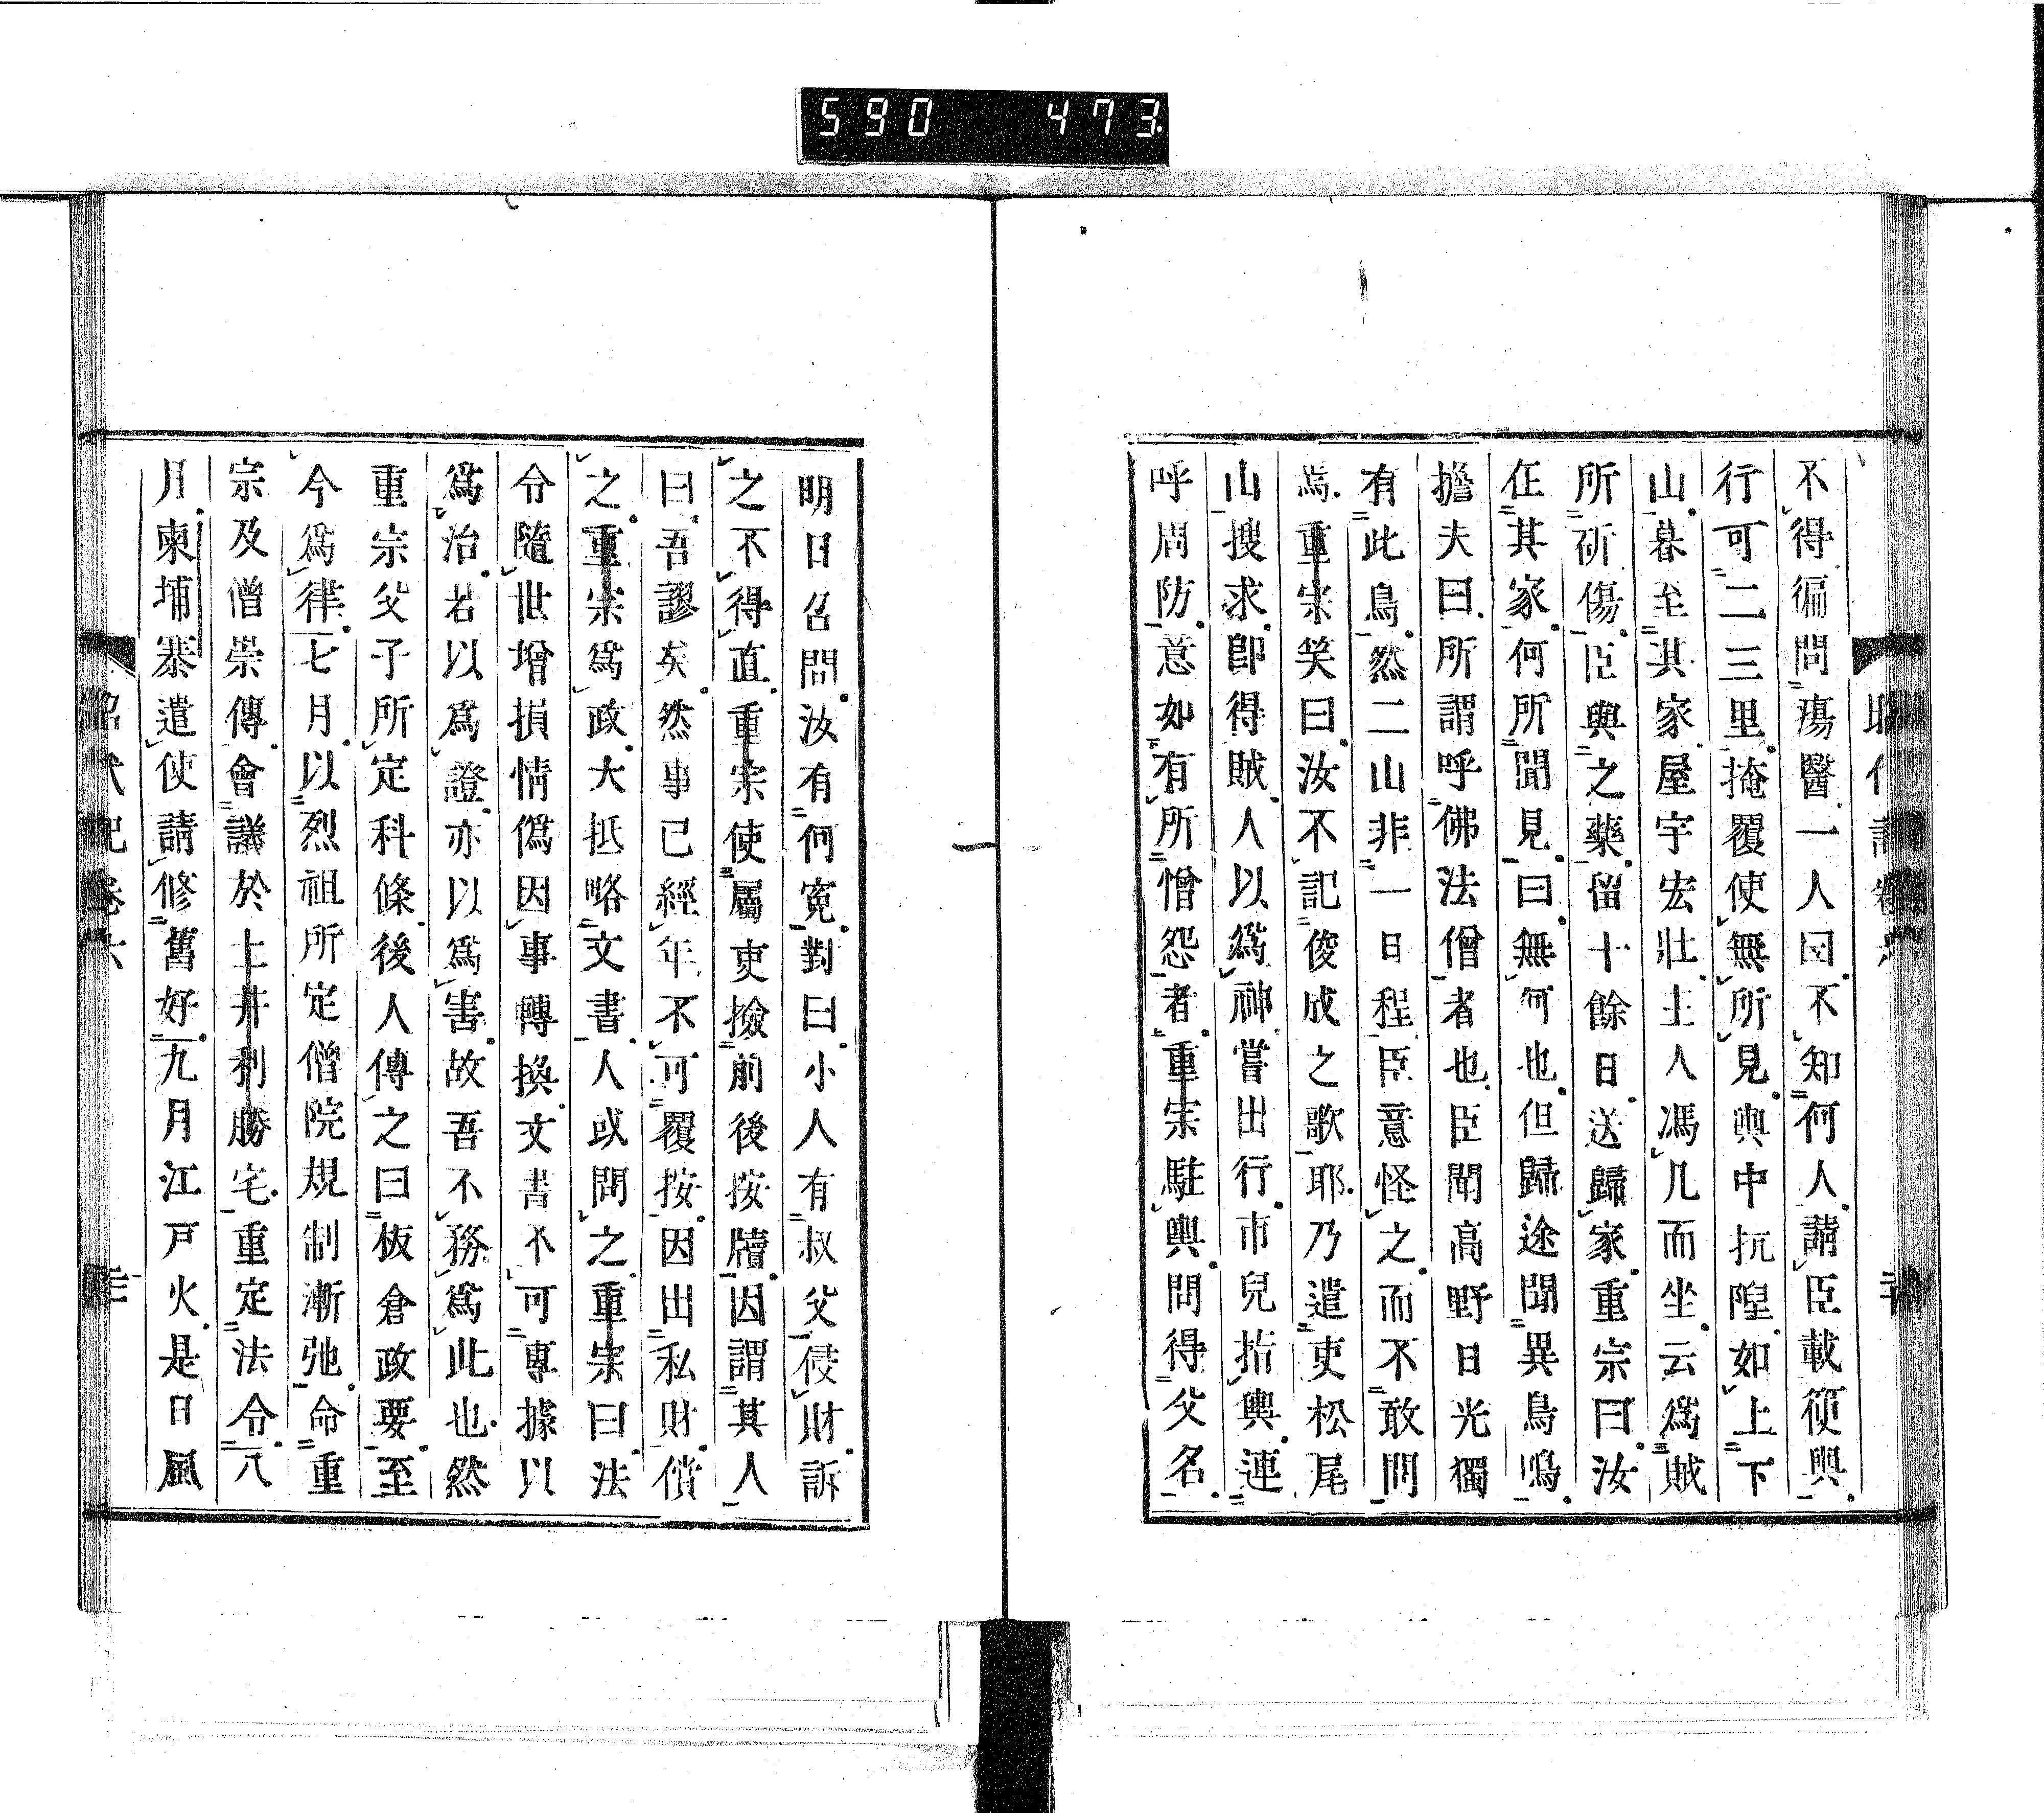 590 473
不得徧問瘍醫一人曰不知何人請臣載筴輿
行可二三里掩覆使無所見輿中抗隍如上下
山暮至其家屋宇宏壯主人馮几而坐云爲賊
所斫傷臣與之藥留十餘日送歸家重宗曰汝
在其家何所聞見曰無何也但歸途聞異鳥鳴
擔夫曰所謂呼佛法僧者也臣聞高野日光獨
有此鳥然二山非一日程臣意怪之而不敢問
焉重宗笑曰汝不記俊成之歌耶乃遣吏松尾
山搜求卽得賊人以爲神嘗出行市兒指輿連
呼周防意如有所憎怨者重宗駐輿問得父名
明日召問汝有何寃對曰小人有叔父侵財訴
之不得直重宗使屬吏撿前後按牘因謂其人
曰吾謬矣然事已經年不可覆按因出私財償
之重宗爲政大抵略文書人或問之重宗曰法
令隨世增損情僞因事轉換文書不可專據以
爲治若以爲證亦以爲害故吾不務爲此也然
重宗父子所定科條後人傳之曰板倉政要至
今爲律七月以烈祖所定僧院規制漸弛命重
宗及僧崇傳會議於土井利勝宅重定法令八
月柬埔寨遣使請修舊好九月江戸火是日風
昭代記卷六